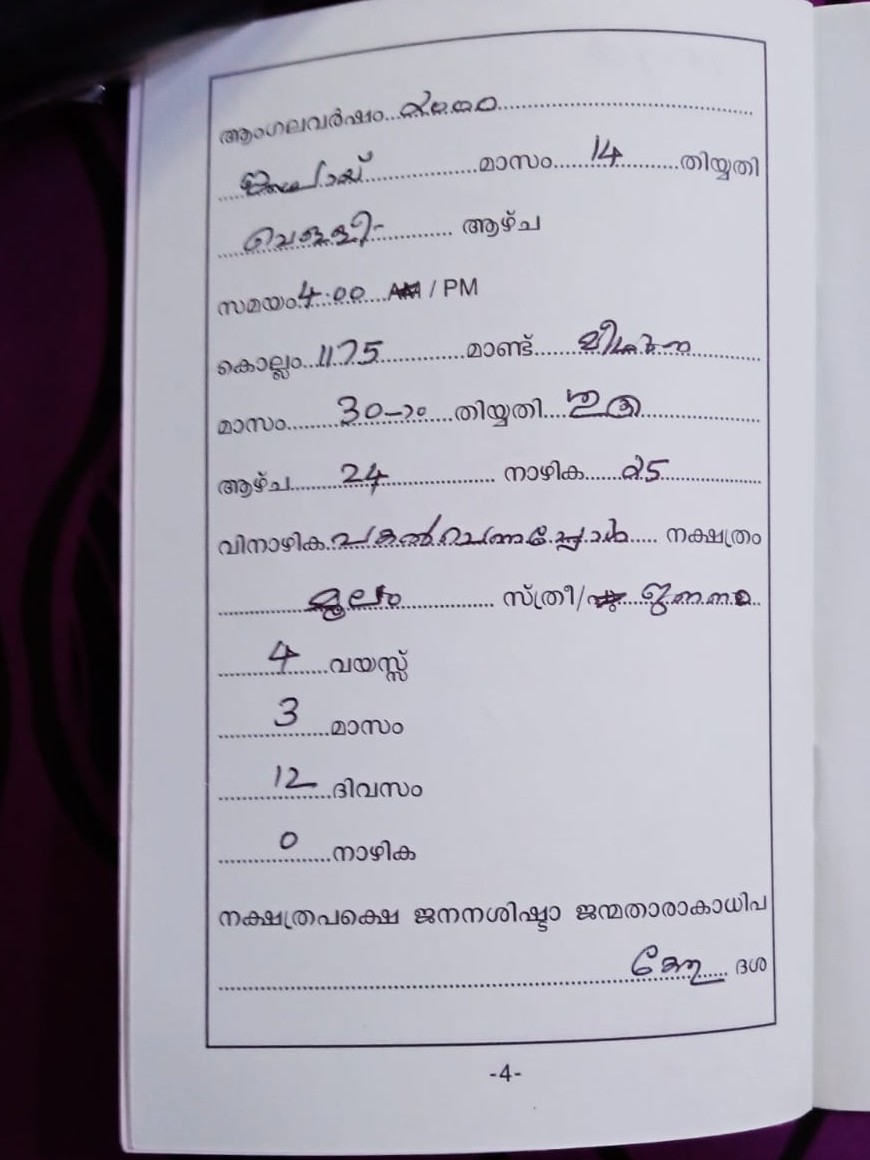 ആംഗലവർഷം...2000
ജൂലായ് മാസം...14...തിയ്യതി
വെള്ളി ആഴ്ച
സമയം 4:00 AM / PM
കൊല്ലം...1175...മാണ്ട്...മിഥുന
മാസം...30-ാം...തിയ്യതി...ഇത്
ആഴ്ച...24...നാഴിക...25
വിനാഴിക...പകൽ ചെന്നപ്പോൾ...നക്ഷത്രം
മൂലം...സ്ത്രീ/പു...ജനനം
4...വയസ്സ്
3...മാസം
12...ദിവസം
0...നാഴിക
നക്ഷത്രപക്ഷെ ജനനശിഷ്ടാ ജന്മതാരാകാധിപ
കേതു...ദശ
-4-